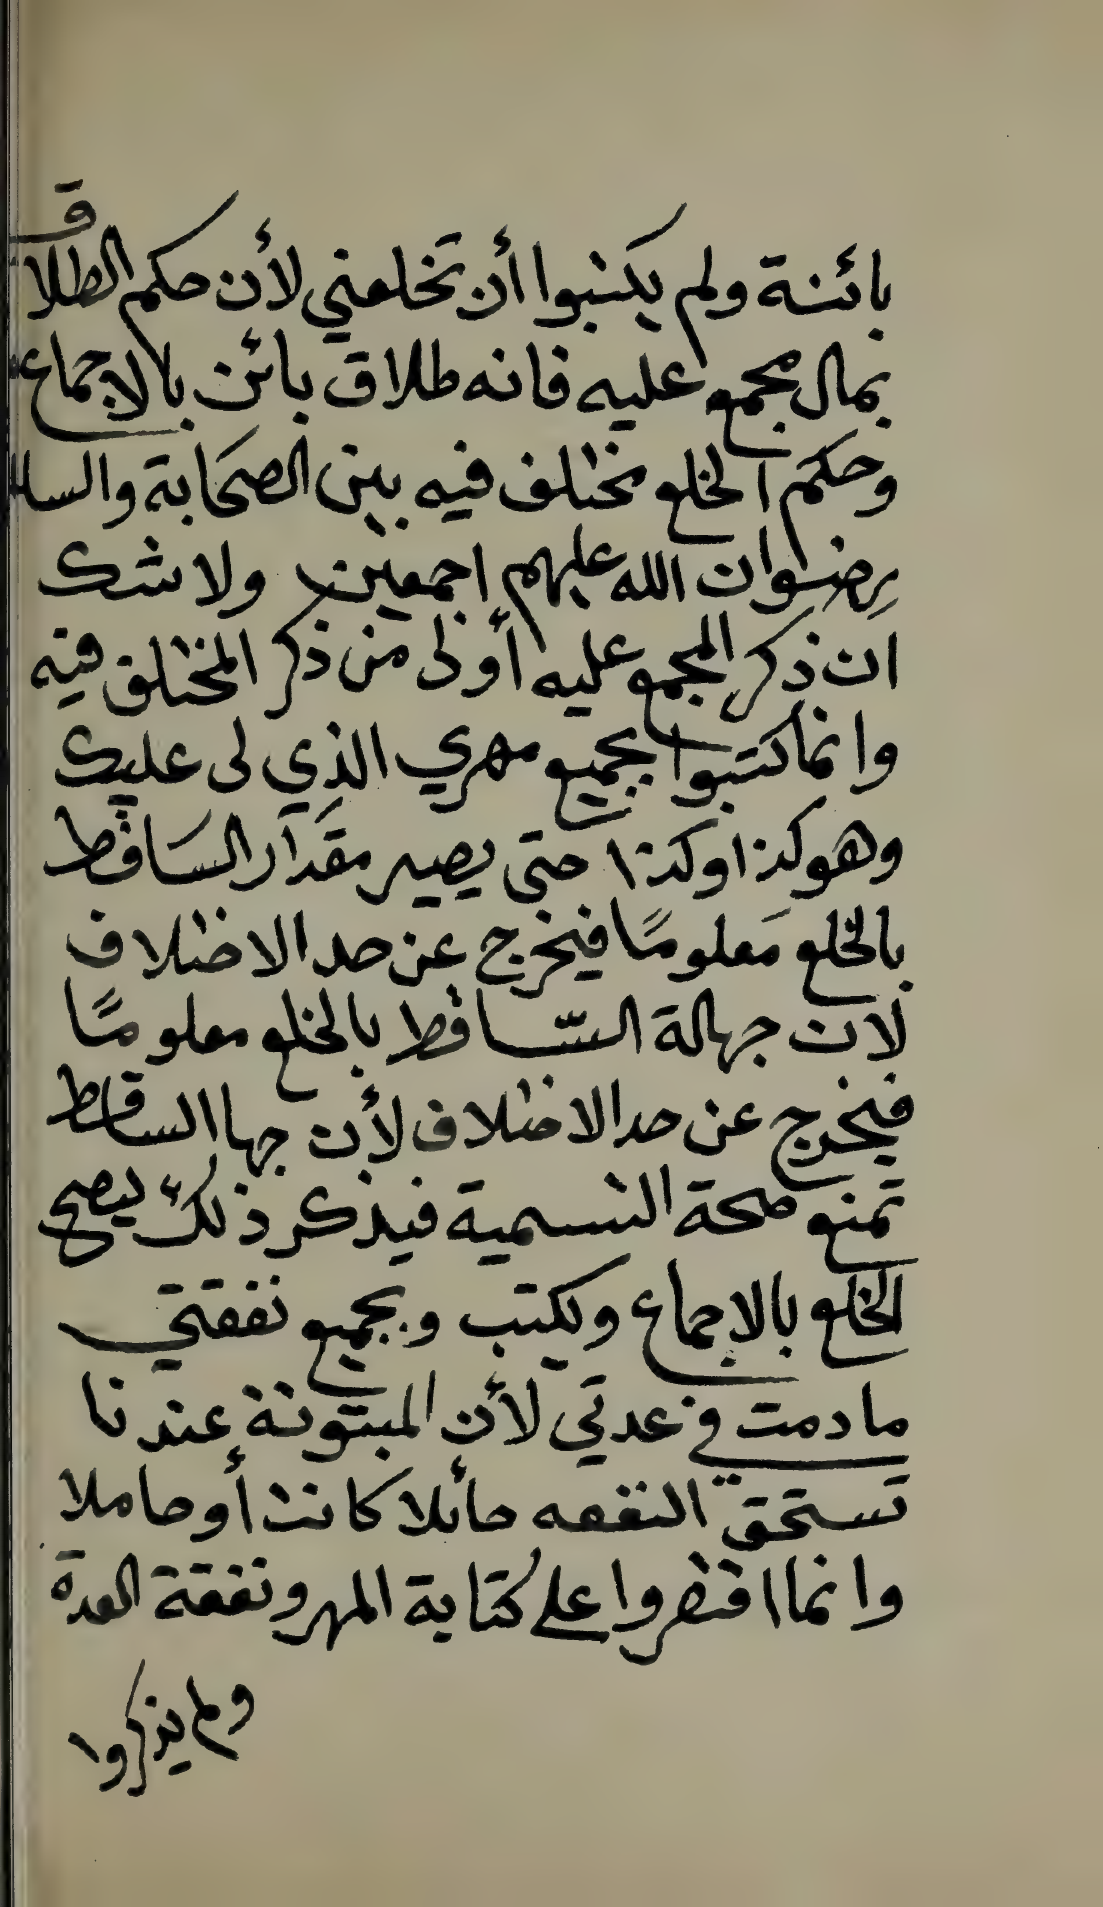 بائنة ولم يكتبوا أن تخلعني لأن حكم الطلاق
بمال مجمع عليه فانه طلاق بائن بالاجماع
وحكم الخلع مختلف فيه بين الصحابة والسلف
رضوان الله عليهم اجمعين ولا شك
ان ذكر المجمع عليه أولى من ذكر المختلق فيه
وانما كتبوا بجميع مهري الذي لى عليك
وهو كذا وكذا حتى يصير مقدار الساقط
بالخلع معلومًا فيخرج عن حد الاختلاف
لان جهالة السّاقط بالخلع معلومًا
فيخرج عن حد الاختلاف لأن جها الساقط
تمنع صحة التسمية فيذكر ذلك ليصح
الخلع بالاجماع ويكتب وبجميع نفقتي
ما دمت في عدتي لأن المبتوتة عندنا
تستحق النفقه حائلا كانت أو حاملا
وانما اقتصروا على كتابة المهر ونفقة العدة
ولم يذكروا